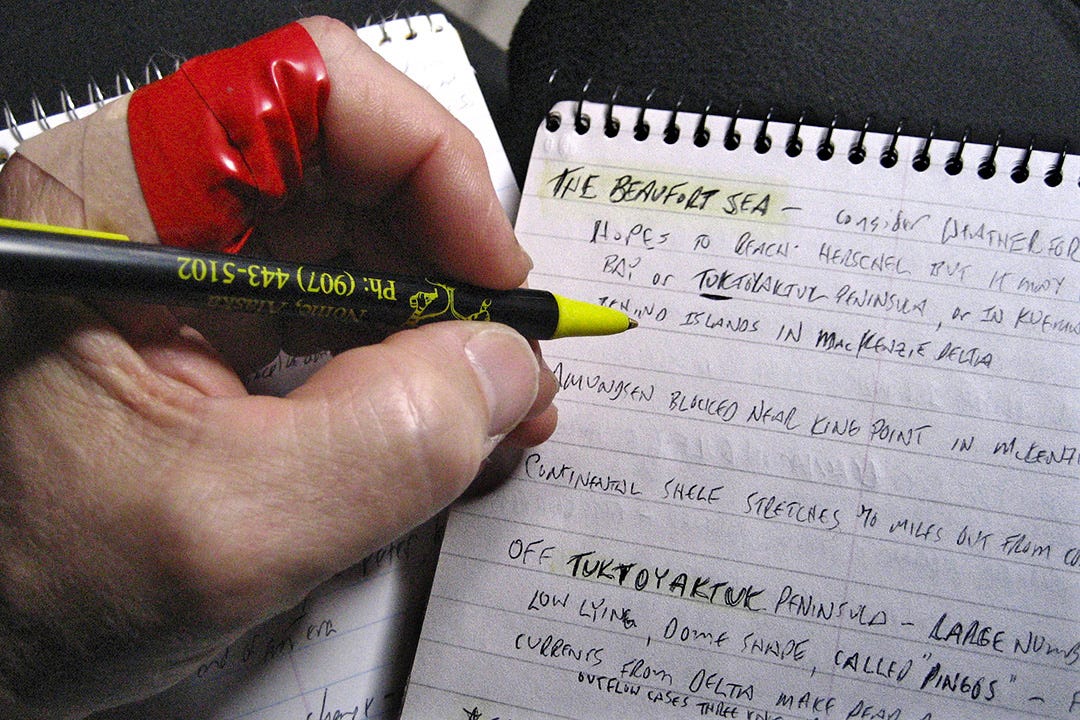 THE BEAUFORT SEA – CONSIDER WEATHER FOR
HOPES TO REACH HERSCHEL BUT IT MAY
BAY or TUKTOYAKTUK PENINSULA, or IN
ISLANDS IN MACKENZIE DELTA
AMUNDSEN BLOCKED NEAR KING POINT IN McKENZI
CONTINENTAL SHELF STRETCHES 70 MILES OUT FROM CO
OFF TUKTOYAKTUK PENINSULA – LARGE NUMB
LOW LYING, DOME SHAPE, CALLED "PINGOS" –
CURRENTS FROM DELTA MAKE
OUTFLOW CASES THREE
Ph: (907) 443-5102
Nome, Alaska
end of an era